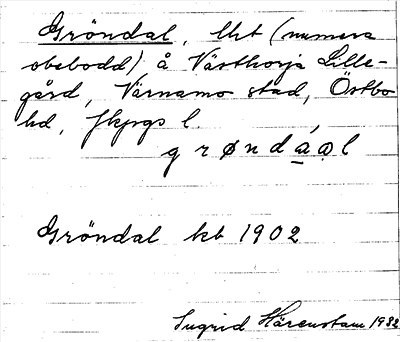 Gröndal, lht (numera
obebodd) å Västhorja Lille-
gård, Värnamo stad, Östbo
hd, Jkpgs l.
grøndáal
Gröndal kb 1902
Ingrid Härenstam 1932